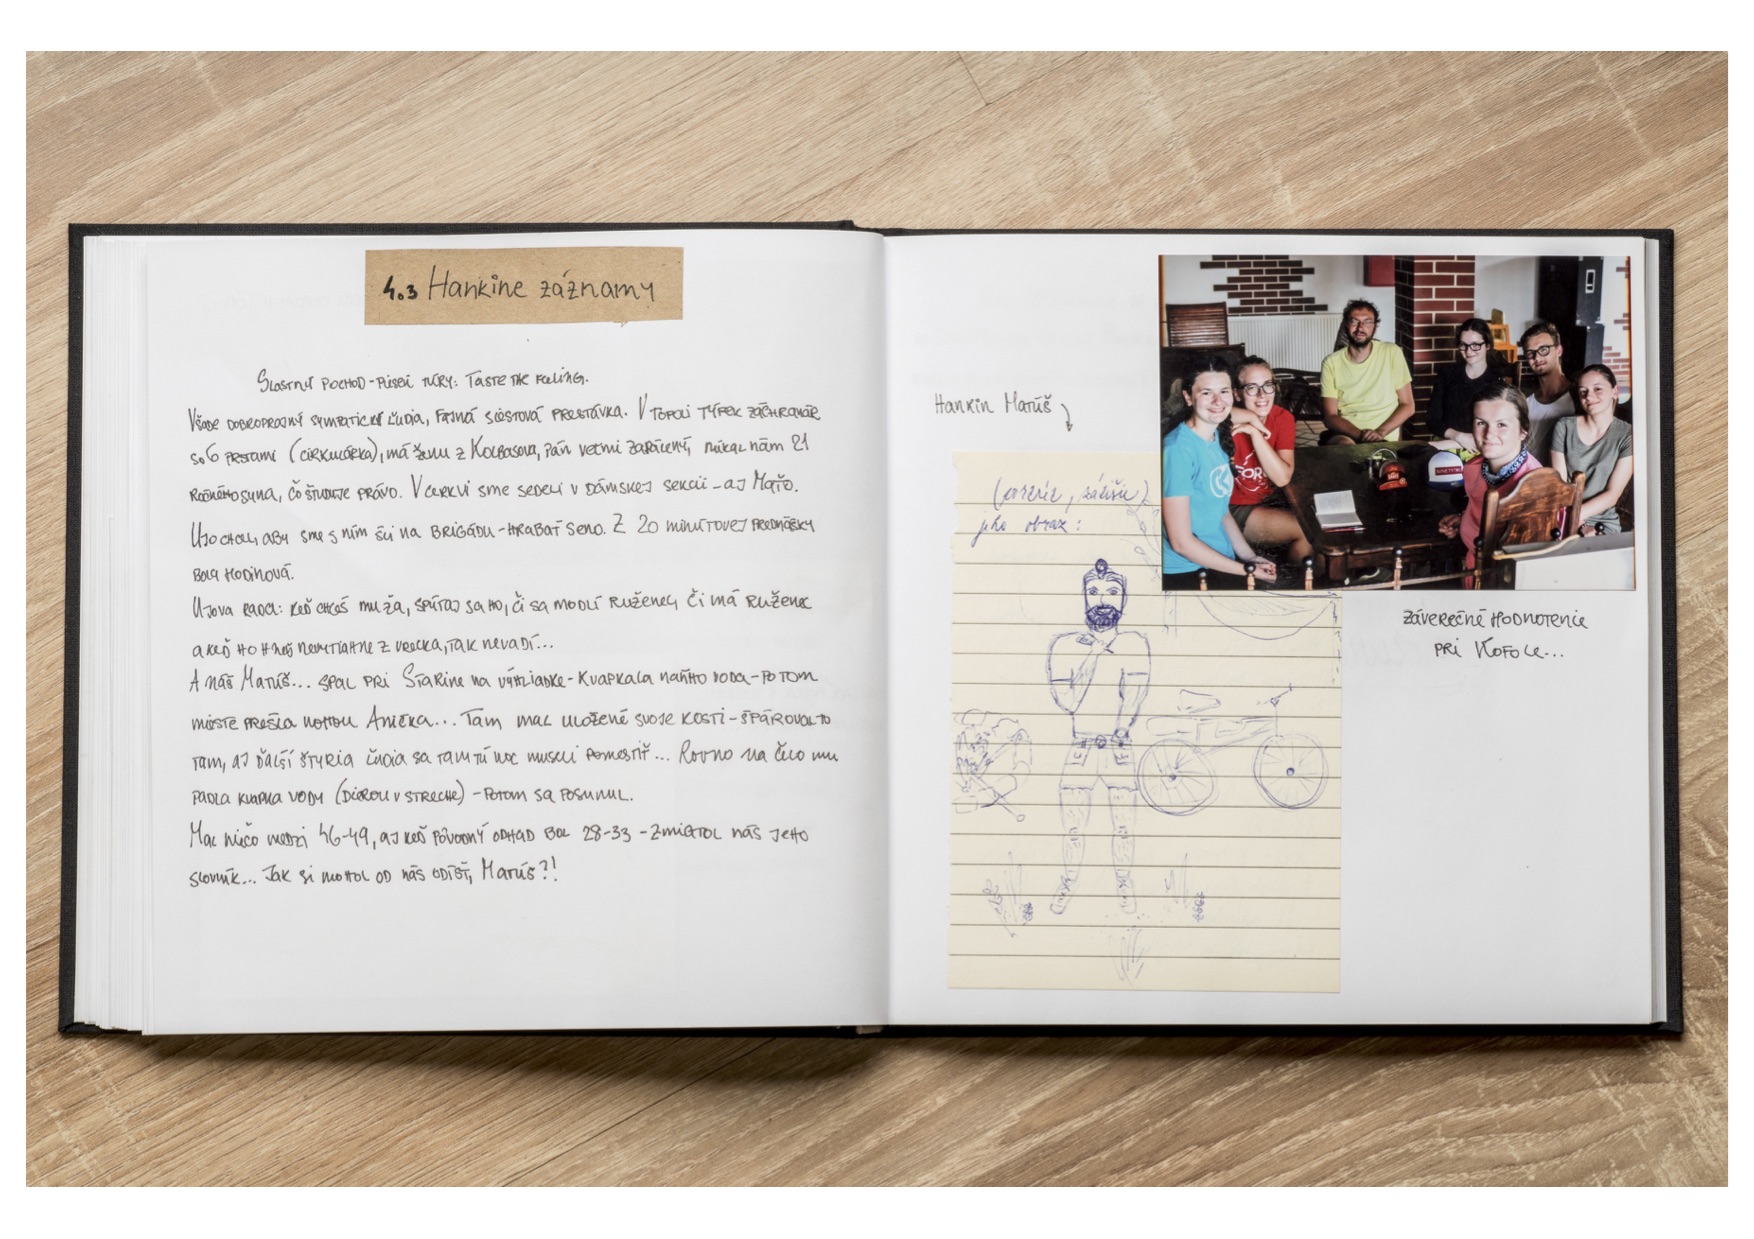 4.3 Hankine záznamy
Slastný pochod - pieseň túry: Taste the Feeling.
Všade dobroprajný sympatickí ľudia, fajná siestová prestávka. V Topoli týpek záchranár
so 6 prstami (cirkulárka), má ženu z Kolbasova, pán veľmi zapálený, núkal nám 21
ročného syna, čo študuje právo. V cerkvi sme sedeli v dámskej sekcii - aj Maťo.
Ujo chcel, aby sme s ním šli na brigádu - hrabať seno. Z 20 minútovej prednášky
bola hodinová.
Ujova rada: keď chceš muža, spýtaj sa ho, či sa modlí ruženec, či má ruženec
a keď ho hneď nevytiahne z vrecka, tak nevadí...
A náš Matúš... spal pri Starine na vyhliadke - kvapkala naňho voda - potom
mieste prešla nohou Anička... Tam mal uložené svoje kosti - špároval to
tam, aj ďalší štyria ľudia sa tam tú noc museli pomestiť... Rovno na čelo mu
padla kvapka vody (dierou v streche) - potom sa posunul.
Mal niečo medzi 46-49, aj keď pôvodný odhad bol 28-33 - zmiatol nás jeho
slovník... Jak si mohol od nás odísť, Matúš?!
Hankin Matúš
jeho obraz:
Záverečné hodnotenie
pri Kofole...